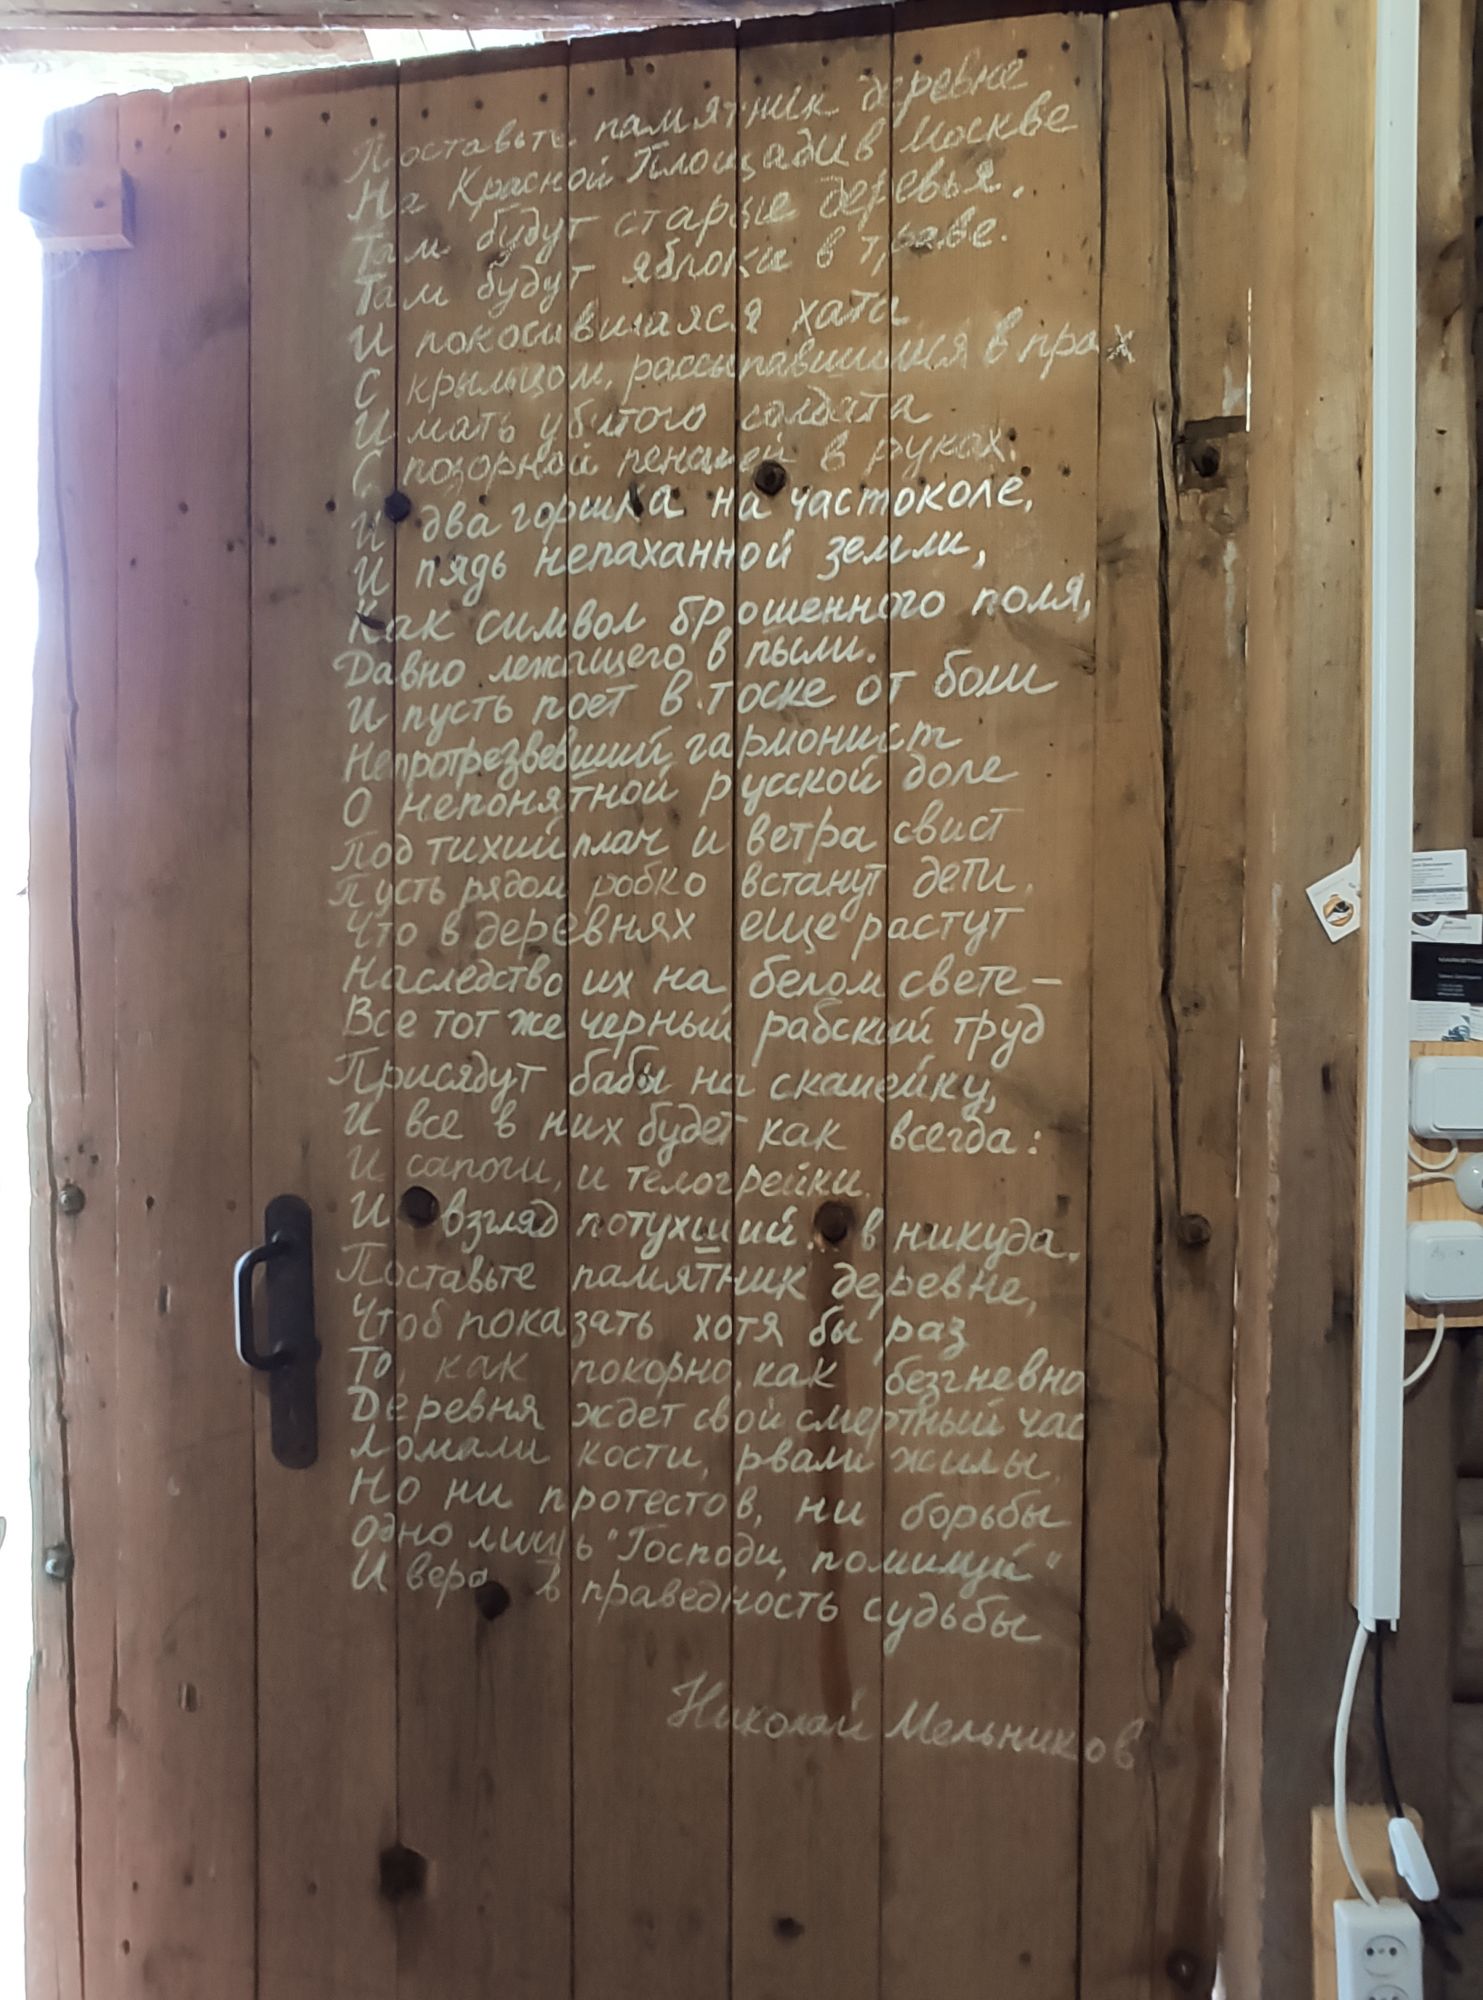 Поставьте памятник деревне
На Красной Площади в Москве
Там будут старые деревья.
Там будут яблоки в траве.
И покосившаяся хата
С крыльцом, рассыпавшимся в прах
И мать убитого солдата
С позорной пенсией в руках.
И два горшка на частоколе,
И пядь непаханной земли,
Как символ брошенного поля,
Давно лежащего в пыли.
И пусть поет в тоске от боли
Непротрезвевший гармонист
О непонятной русской доле
Под тихий плач и ветра свист
Пусть рядом робко встанут дети,
Что в деревнях еще растут
Наследство их на белом свете –
Все тот же черный рабский труд
Присядут бабы на скамейку,
И все в них будет как всегда:
И сапоги, и телогрейки.
И взгляд потухший... в никуда.
Поставьте памятник деревне,
Чтоб показать хотя бы раз
То, как покорно, как безгневно
Деревня ждет свой смертный час
Ломали кости, рвали жилы,
Но ни протестов, ни борьбы
Одно лишь "Господи, помилуй"
И вера в праведность судьбы
Николай Мельников